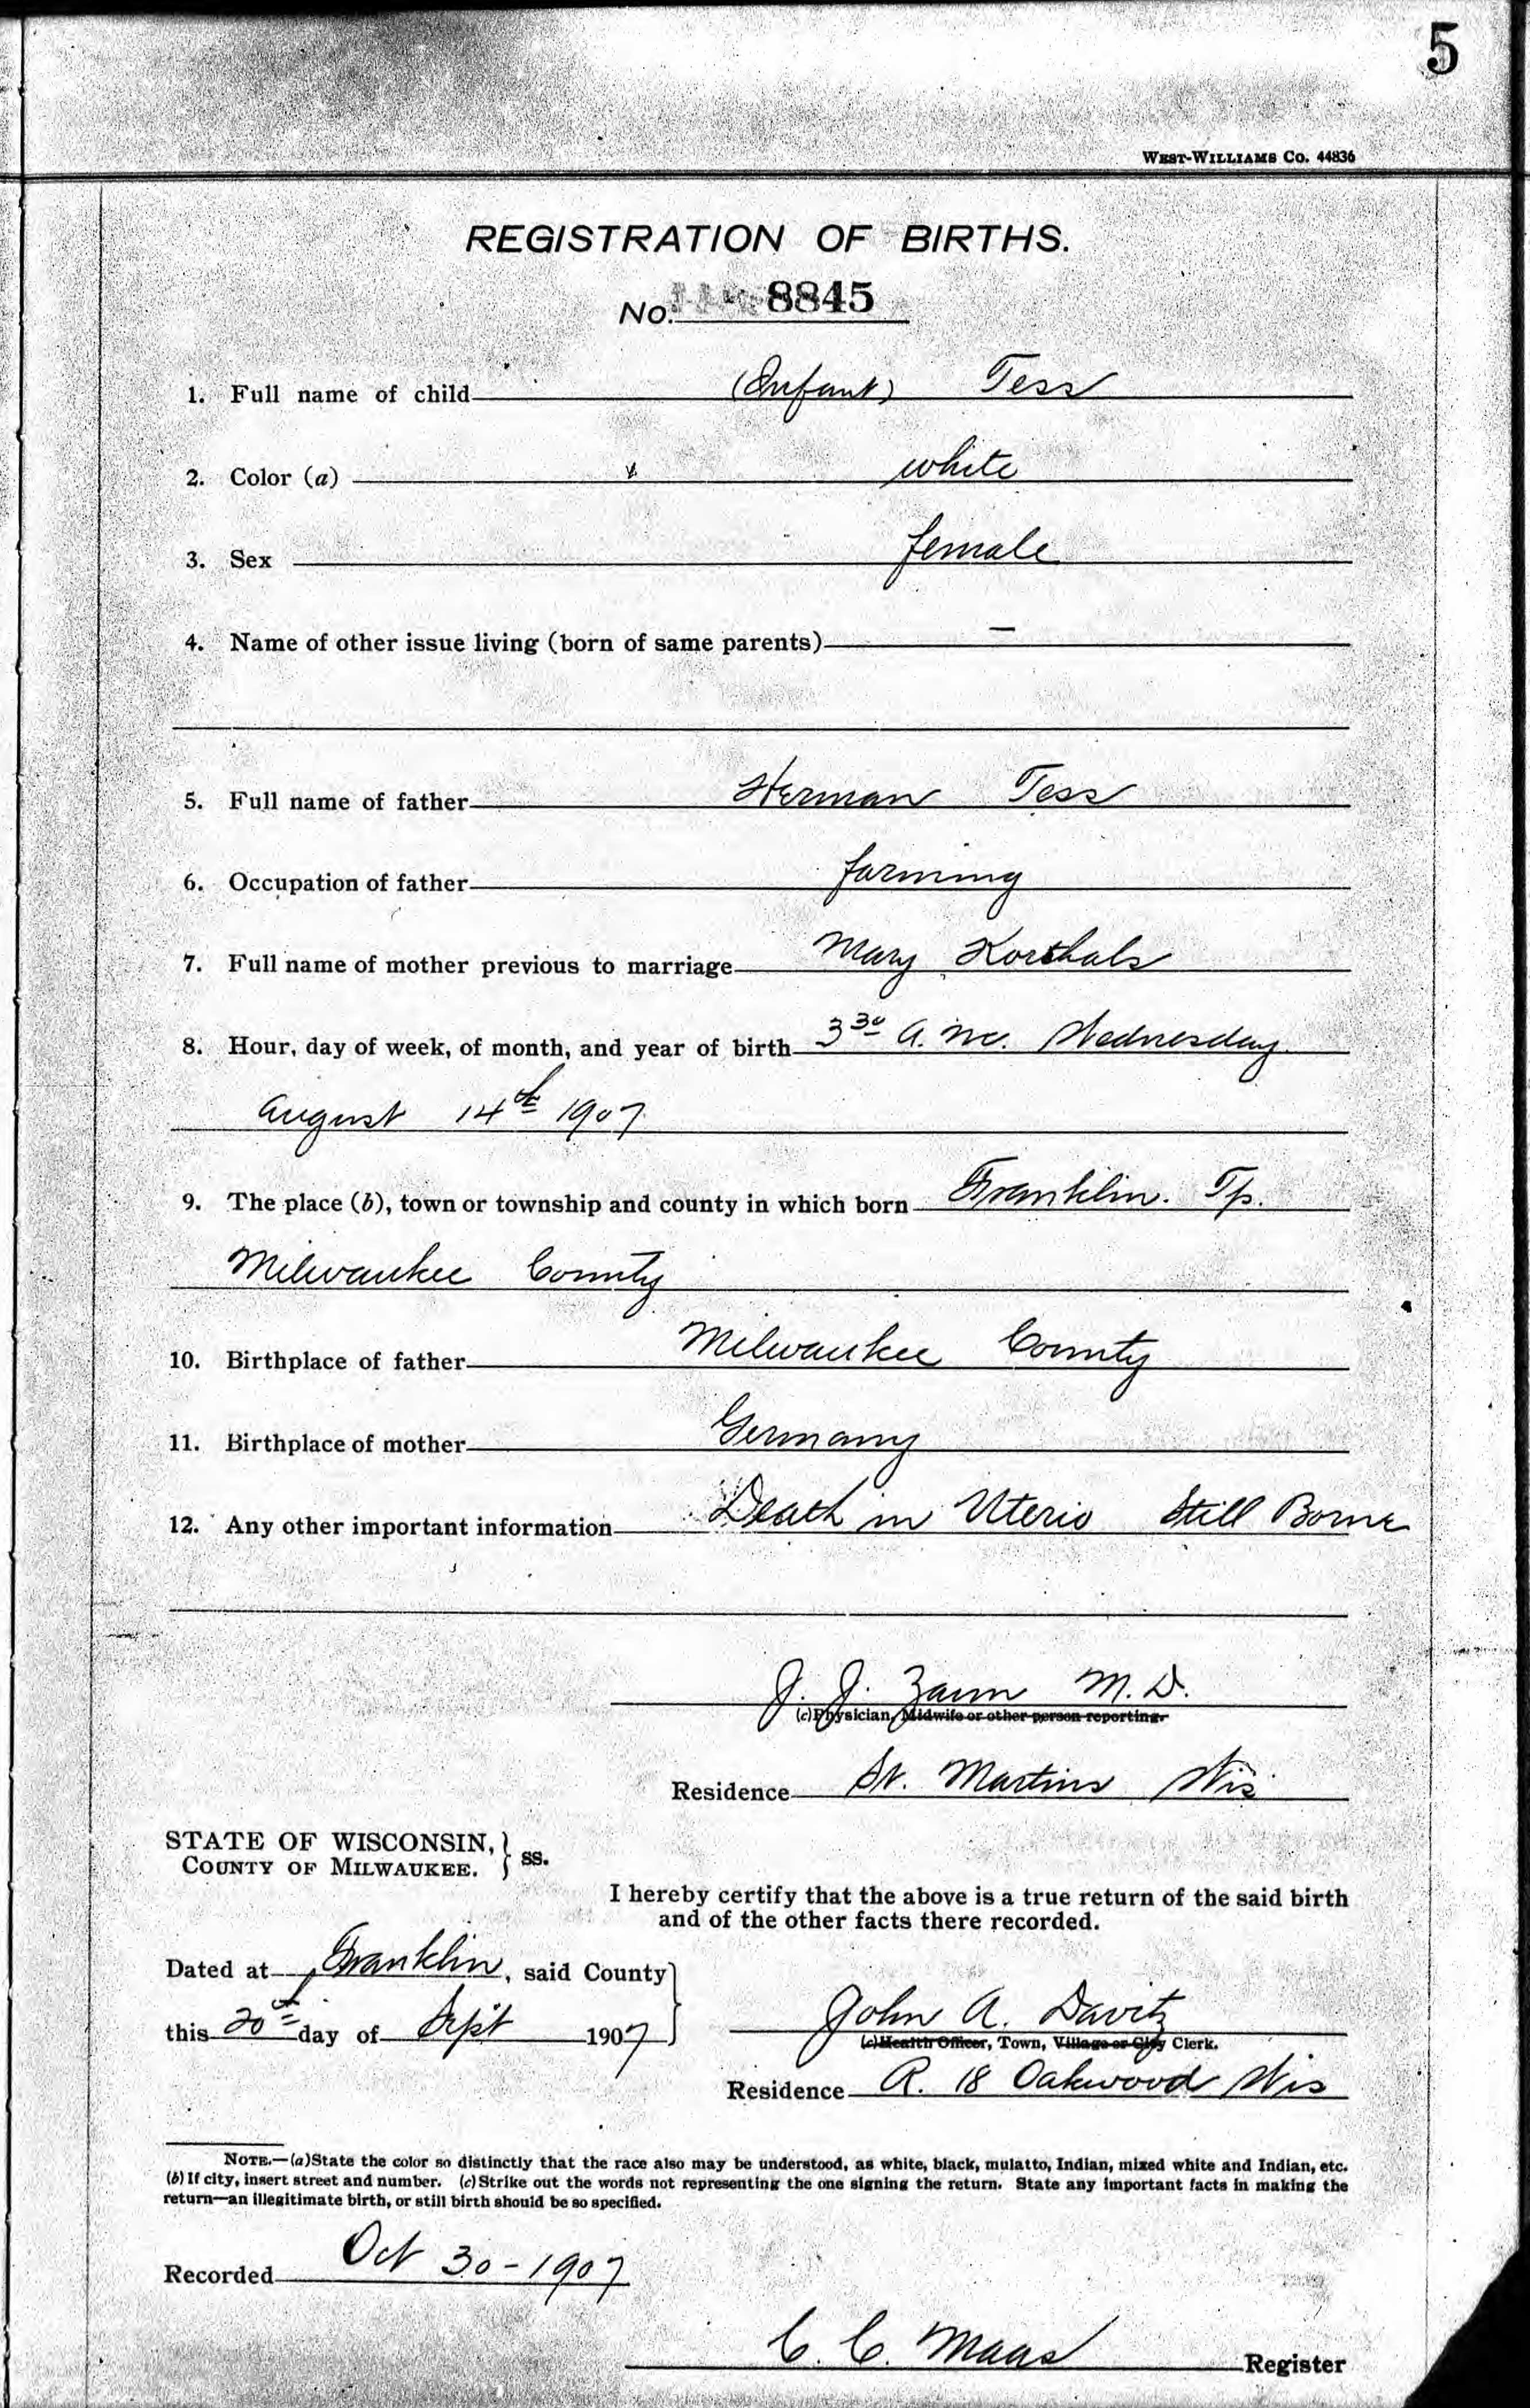 5
WEST-WILLIAMS CO. 44836
REGISTRATION OF BIRTHS.
No. 8845
1. Full name of child (Infant) Tess
2. Color (a) white
3. Sex female
4. Name of other issue living (born of same parents) —
5. Full name of father Herman Tess
6. Occupation of father farming
7. Full name of mother previous to marriage Mary Korthals
8. Hour, day of week, of month, and year of birth 3 30 A.M. Wednesday
August 14th 1907
9. The place (b), town or township and county in which born Franklin. Tp.
Milwaukee County
10. Birthplace of father Milwaukee County
11. Birthplace of mother Germany
12. Any other important information Death in Uterio Still Borne
J. J. Zaun M. D.
(c) Physician, Midwife or other person reporting.
Residence St. Martins Wis
STATE OF WISCONSIN, } ss.
COUNTY OF MILWAUKEE.
I hereby certify that the above is a true return of the said birth
and of the other facts there recorded.
Dated at Franklin, said County
this 20th day of Sept 1907
John A. Davitz
(c) Health Officer, Town, Village or City Clerk.
Residence R. 18 Oakwood Wis
NOTE.—(a) State the color so distinctly that the race also may be understood, as white, black, mulatto, Indian, mixed white and Indian, etc.
(b) If city, insert street and number. (c) Strike out the words not representing the one signing the return. State any important facts in making the
return—an illegitimate birth, or still birth should be so specified.
Recorded Oct 30-1907
C. C. Maas Register